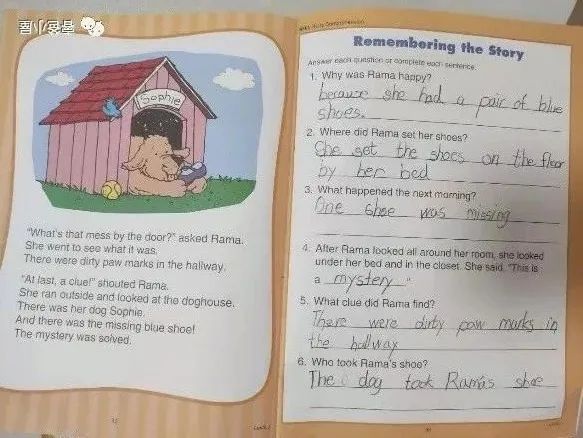 Sophie
"What's that mess by the door?" asked Rama.
She went to see what it was.
There were dirty paw marks in the hallway.
"At last, a clue!" shouted Rama.
She ran outside and looked at the doghouse.
There was her dog Sophie.
And there was the missing blue shoe!
The mystery was solved.
Remembering the Story
Answer each question or complete each sentence.
1. Why was Rama happy?
because she had a pair of blue
shoes.
2. Where did Rama set her shoes?
She set the shoes on the floor
by her bed
3. What happened the next morning?
One shoe was missing
4. After Rama looked all around her room, she looked
under her bed and in the closet. She said, "This is
a mystery."
5. What clue did Rama find?
There were dirty paw marks in
the hallway
6. Who took Rama's shoe?
The dog took Rama's shoe